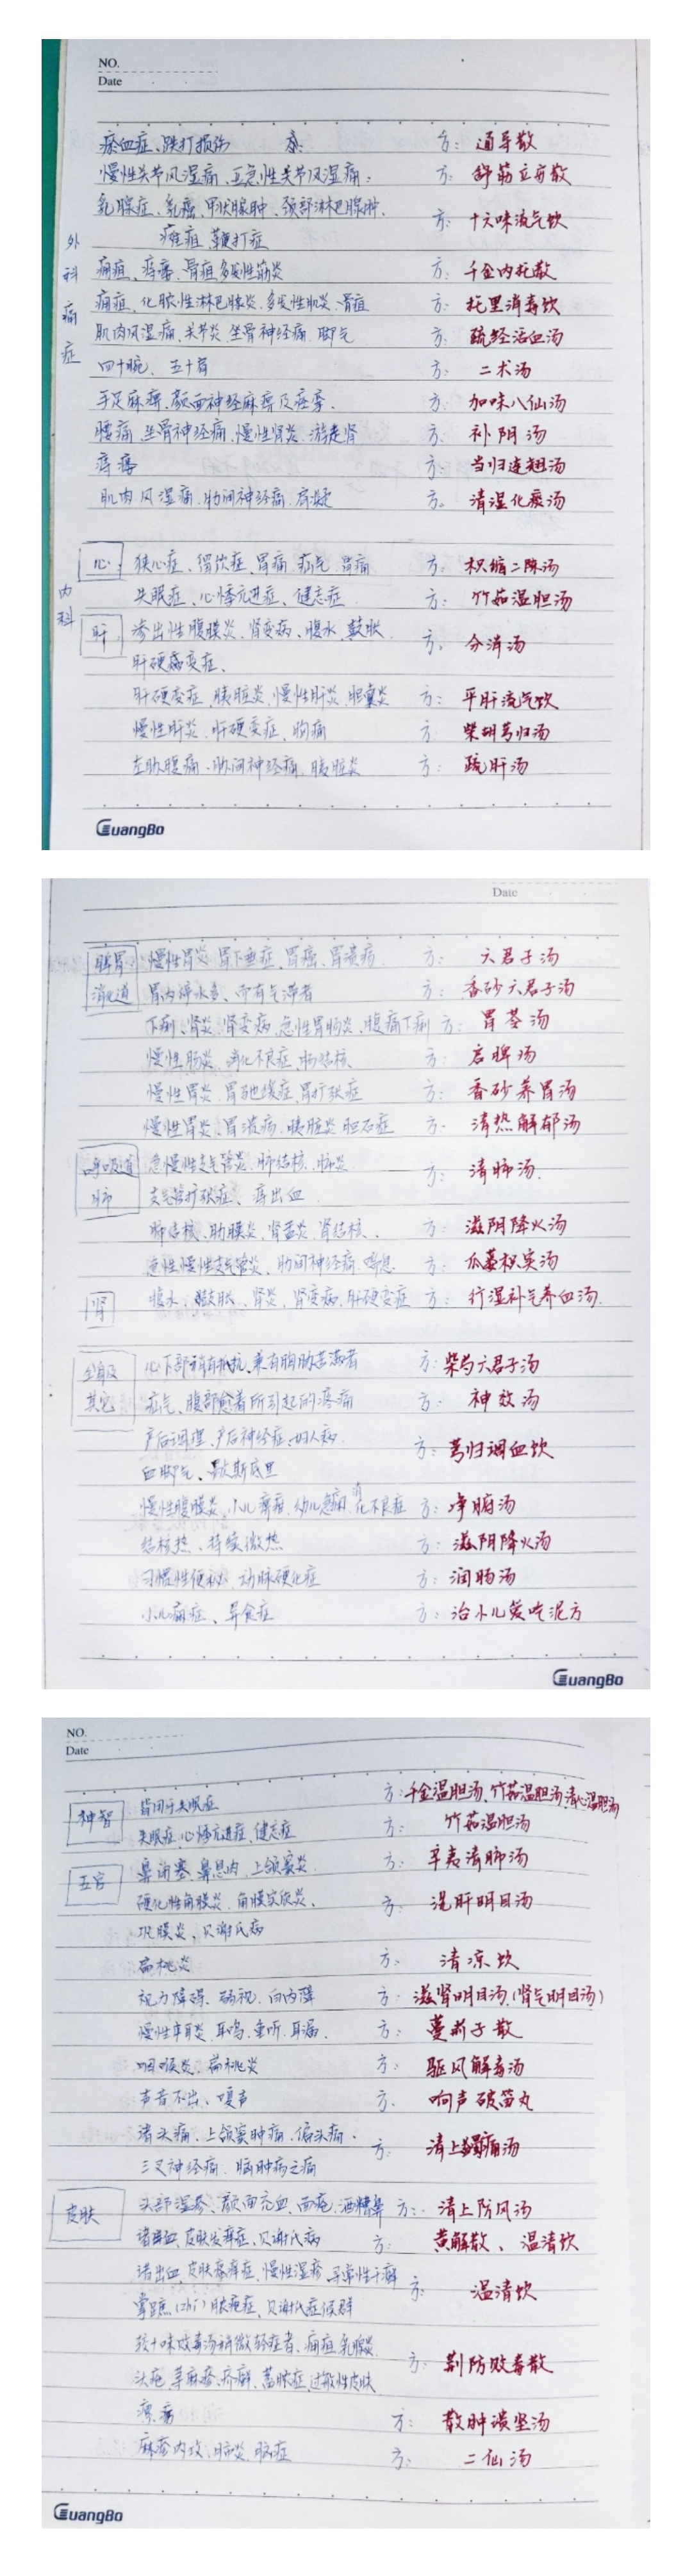 NO.
Date
瘀血症、跌打损伤 方: 通导散
慢性关节风湿痛、急性关节风湿痛: 方: 舒筋立安散
乳腺症、乳癌、甲状腺肿、颈部淋巴腺肿、
瘫疽、鞭打症 方: 十六味流气饮
外科痛症
痈疽、痔瘘、骨疽多发性筋炎 方: 千金内托散
痈症、化脓性淋巴腺炎、多发性肌炎、骨疽 方: 托里消毒饮
肌肉风湿痛、关节炎、坐骨神经痛、脚气 方: 疏经活血汤
四十腕、五十肩 方: 二术汤
手足麻痹、颜面神经麻痹及痉挛. 方: 加味八仙汤
腰痛、坐骨神经痛、慢性肾炎、游走肾 方: 补阴汤
痔瘘 方: 当归连翘汤
肌肉风湿痛、肋间神经痛、肩凝 方: 清湿化痰汤
内科
心 狭心症、留饮症、胃痛、疝气、胃痛 方: 枳缩二陈汤
失眠症、心悸亢进症、健忘症 方: 竹茹温胆汤
肝 渗出性腹膜炎、肾变病、腹水、鼓胀 方: 分消汤
肝硬变症、
肝硬变症、胰脏炎、慢性肝炎、胆囊炎 方: 平肝流气饮
慢性肝炎、肝硬变症、胸痛 方: 柴胡芎归汤
左肋腹痛、肋间神经痛、胰脏炎 方: 疏肝汤
GuangBo
Date
脾胃 慢性胃炎、胃下垂症、胃癌、胃溃病 方: 六君子汤
消化道 胃内停水多、而有气滞者 方: 香砂六君子汤
下痢、肾炎、肾变病、急性胃肠炎、腹痛下痢 方: 胃苓汤
慢性肠炎、消化不良症、肠结核、 方: 启脾汤
慢性胃炎、胃弛缓症、胃扩张症 方: 香砂养胃汤
慢性胃炎、胃溃病、胰脏炎、胆石症 方: 清热解郁汤
呼吸道 急慢性支气管炎、肺结核、肺炎 方: 清肺汤.
肺 支气管扩张症、痔出血.
肺结核、肋膜炎、肾盂炎、肾结核、 方: 滋阴降火汤
急性慢性支气管炎、肋间神经痛、喘息 方: 瓜蒌枳实汤
肾 腹水、鼓胀、肾炎、肾变病、肝硬变症 方: 行湿补气养血汤.
全身及 心下部稍有抵抗、兼有胸胁苦满者 方: 柴芍六君子汤
其它 疝气、腹部愈着所引起的疼痛 方: 神效汤
产后调理、产后神经症、妇人病. 方: 芎归调血饮
血脚气、歇斯底里
慢性腹膜炎、小儿癖疳、幼儿急痫、消化不良症 方: 净腑汤
结核热、持续微热 方: 滋阴降火汤
习惯性便秘、动脉硬化症 方: 润肠汤
小儿痫症、异食症 方: 治小儿爱吃泥方
GuangBo
NO.
Date
神智 皆用于失眠症 方: 千金温胆汤、竹茹温胆汤、清心温胆汤
失眠症、心悸亢进症、健忘症 方: 竹茹温胆汤
五官 鼻闭塞、鼻息肉、上颌窦炎. 方: 辛夷清肺汤
硬化性角膜炎、角膜实质炎、 方: 洗肝明目汤
巩膜炎、贝谢氏病
扁桃炎 方: 清凉饮
视力障碍、弱视、白内障 方: 滋肾明目汤.(肾气明目汤)
慢性中耳炎、耳鸣、重听、耳漏. 方: 蔓荆子散
咽喉炎、扁桃炎 方: 驱风解毒汤
声音不出、嗄声 方. 响声破笛丸
诸头痛、上颌窦肿痛、偏头痛、 方: 清上蠲痛汤
三叉神经痛、脑肿病之痛
皮肤 头部湿疹、颜面充血、面疱、酒糟鼻 方: 清上防风汤
诸出血、皮肤发痒症、贝谢氏病 方: 黄解散、温清饮
诸出血、皮肤瘙痒症、慢性湿疹、寻常性干癣 方: 温清饮
掌蹠(zhi)脓疱症、贝谢氏症候群
较十味败毒汤稍微轻症者、痈疽、乳腺炎. 方: 荆防败毒散
头疮、荨麻疹、疥癣、蓄脓症、过敏性皮肤
瘰疬 方: 散肿溃坚汤
麻疹内攻、肺炎、脑症 方: 二仙汤
GuangBo